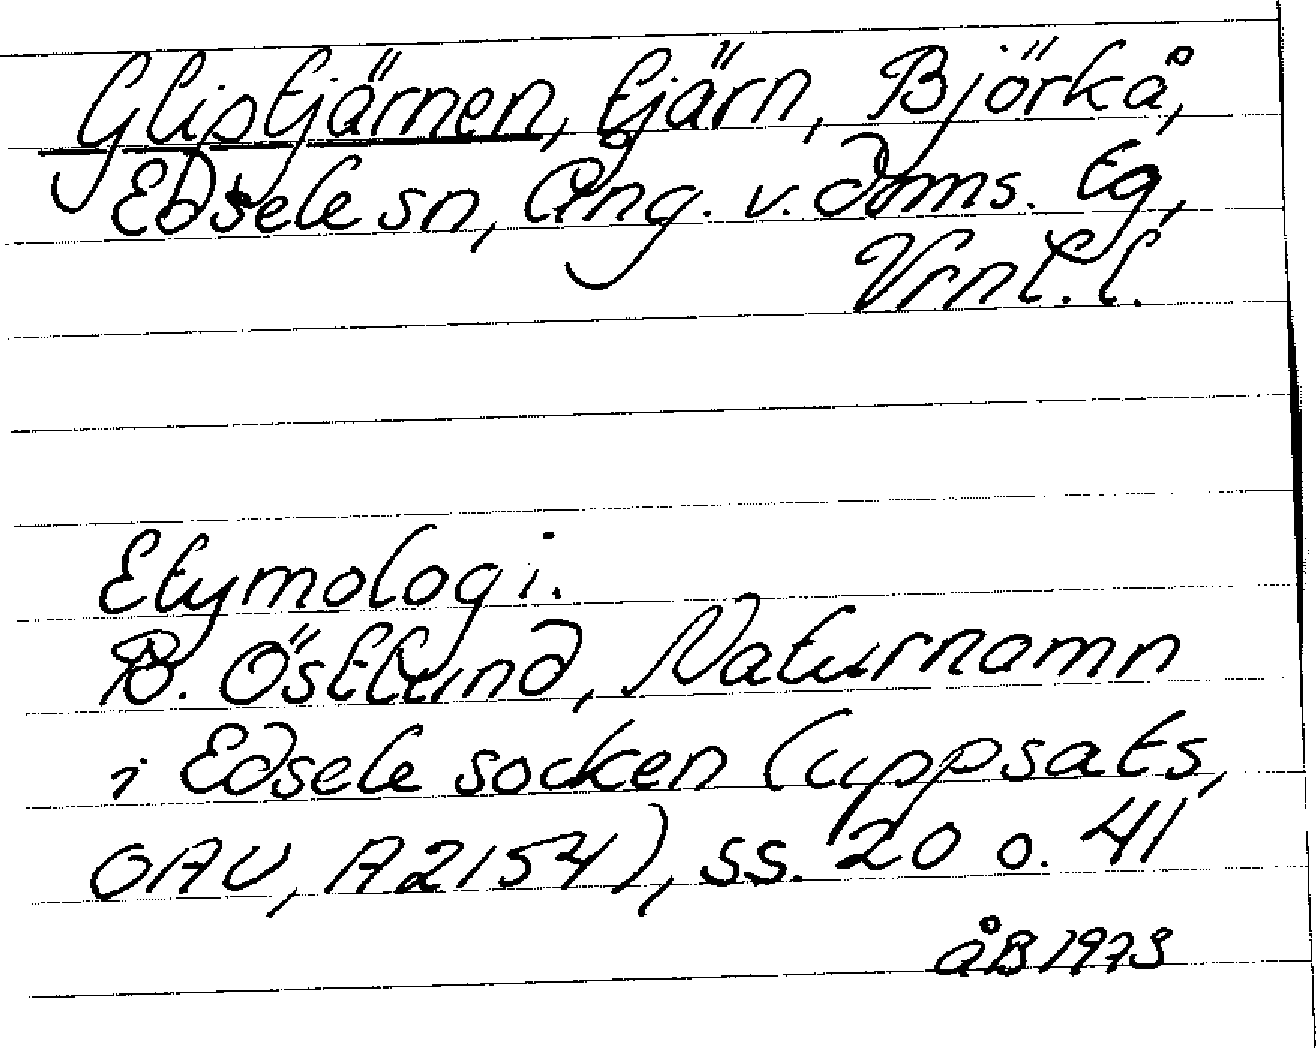 Gliptjärnen, tjärn, Björkå,
Edsele sn, Ång. v. doms. tg,
Vrnl. l.
Etymologi.
B. Östlund, Naturnamn
i Edsele socken (uppsats,
OAU, A2154), ss. 20 o. 41
åB 1973